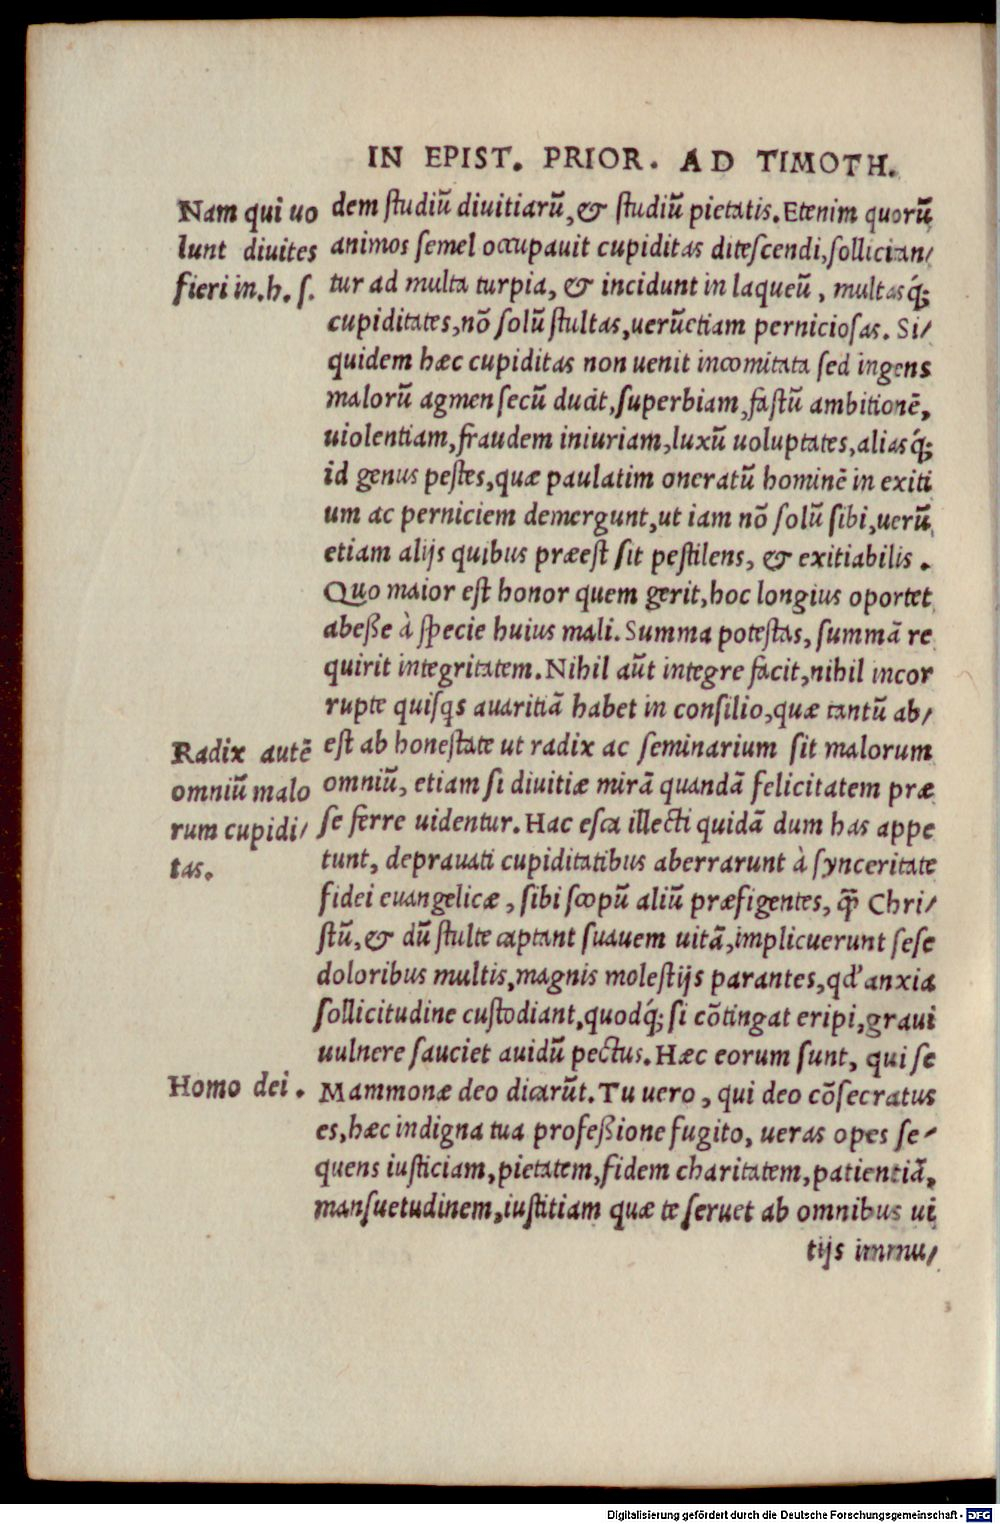 IN EPIST. PRIOR. AD TIMOTH.
Nam qui uo
lunt diuites
fieri in.h.s.
dem studiū diuitiarū, & studiū pietatis. Etenim quorū
animos semel occupauit cupiditas ditescendi, sollicitan/
tur ad multa turpia, & incidunt in laqueū, multasq́;
cupiditates, nō solū stultas, uerūetiam perniciosas. Si/
quidem hæc cupiditas non uenit incomitata sed ingens
malorū agmen secū ducit, superbiam, fastū ambitionē,
uiolentiam, fraudem iniuriam, luxū uoluptates, aliasq́;
id genus pestes, quæ paulatim oneratū hominē in exiti
um ac perniciem demergunt, ut iam nō solū sibi, uerū
etiam alijs quibus præest sit pestilens, & exitiabilis.
Quo maior est honor quem gerit, hoc longius oportet
abeße à specie huius mali. Summa potestas, summā re
quirit integritatem. Nihil aūt integre facit, nihil incor
rupte quisqs auaritiā habet in consilio, quæ tantū ab/
est ab honestate ut radix ac seminarium sit malorum
omniū, etiam si diuitiæ mirā quandā felicitatem præ
se ferre uidentur. Hac esca illecti quidā dum has appe
tunt, deprauati cupiditatibus aberrarunt à synceritate
fidei euangelicæ, sibi scopū aliū præfigentes, q̃ Chri/
stū, & dū stulte captant suauem uitā, implicuerunt sese
doloribus multis, magnis molestijs parantes, qd' anxia
sollicitudine custodiant, quodq́; si cōtingat eripi, graui
uulnere sauciet auidū pectus. Hæc eorum sunt, qui se
Mammonæ deo dicarūt. Tu uero, qui deo cōsecratus
es, hæc indigna tua profeßione fugito, ueras opes se/
quens iusticiam, pietatem, fidem charitatem, patientiā,
mansuetudinem, iustitiam quæ te seruet ab omnibus ui
tijs immu/
Radix autē
omniū malo
rum cupidi/
tas.
Homo dei.
Digitalisierung gefördert durch die Deutsche Forschungsgemeinschaft - DFG